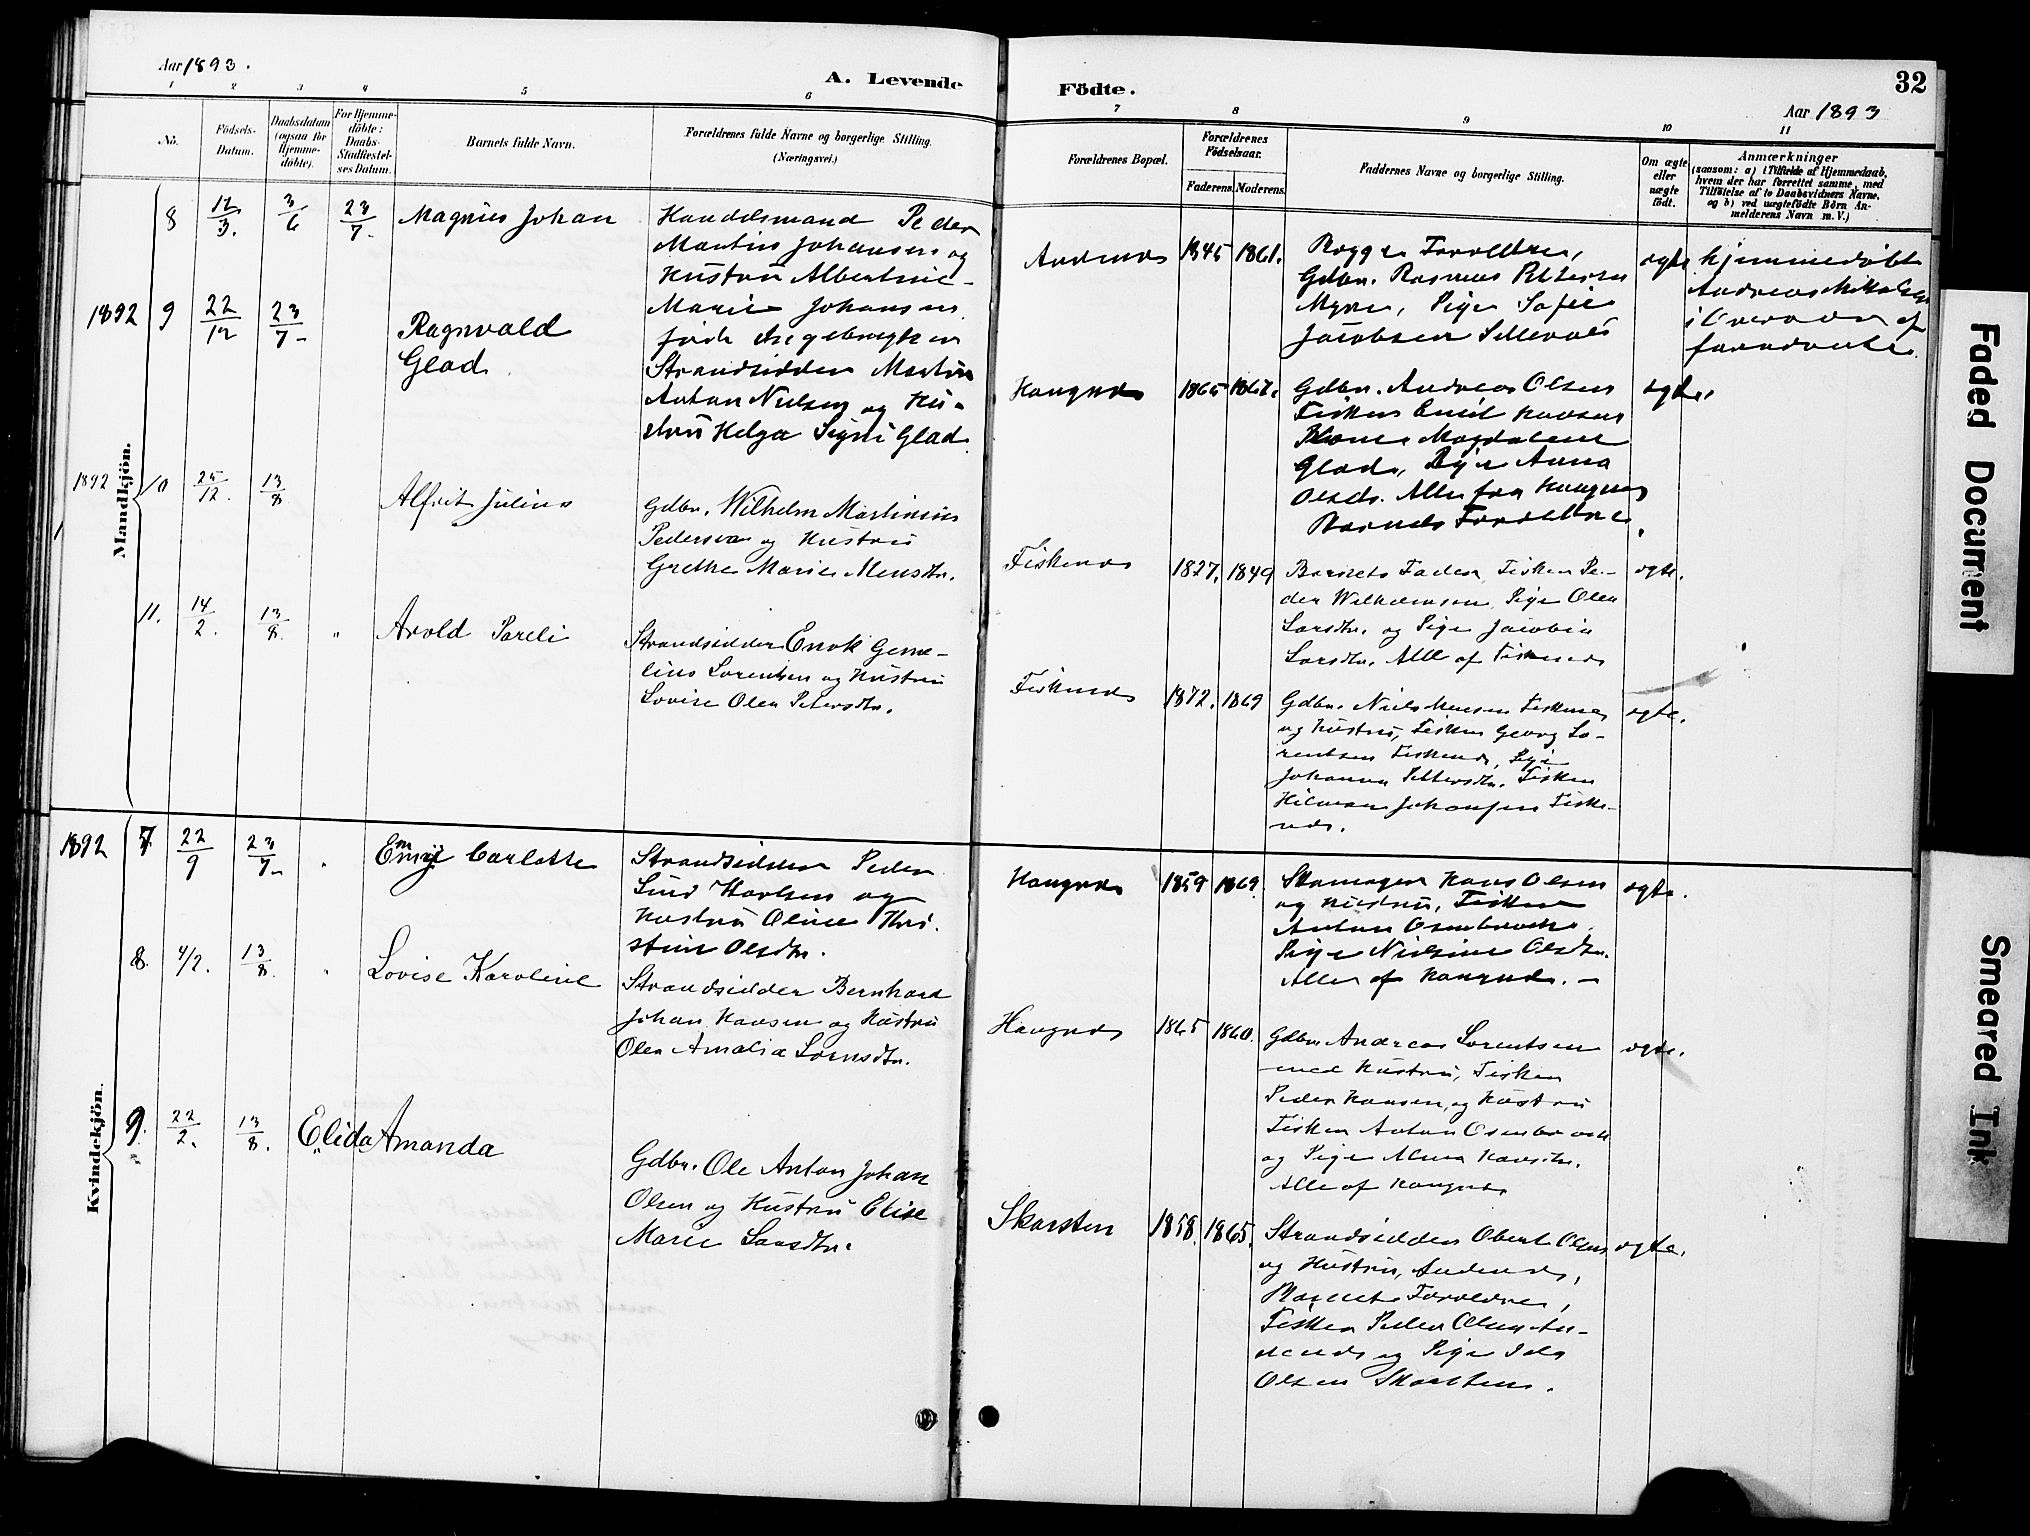 Aar 1893.
A. Levende
1 2 3 4 5 6
No.
Födsels-
Datum.
Daabsdatum
(ogsaa for
Hjemme-
döbte).
For Hjemme-
döbte:
Daabs-
Stadfæstel-
ses Datum.
Barnets fulde Navn.
Forældrenes fulde Navne og borgerlige Stilling.
(Næringsvei.)
Mandkjön.
8 12/3. 3/6 23/7. Magnus Johan
Handelsmand Peder
Martin Johansen og
Hustru Albertine
Marie Johansen
født
1892 9 22/12 23/7 Ragnvald
Glad
Strandsidder Martin
Anton Nielsen og Hu-
stru Helga Signi Glad
1892 10 25/12. 13/8 Alfrit Julius
Gdbr. Wilhelm Martinius
Pedersen og Hustru
Grethe Marie Mensdtr.
11. 14/2. 13/8. " Arold Pareli
Strandsidder Enok Geme-
lius Lorentsen og Hustru
Lovise Olea Petersdtr.
Kvindekjön.
1892 7 22/9 23/7 " Emy Carlotte
Strandsidder Peder
Lind Karlsen og
Hustru Oluise Kri-
stine Olsdtr.
8. 4/2. 13/8. " Lovise Karoline
Strandsidder Bernhard
Johan Hansen og Hustru
Olea Amalia Lornsdtr.
9. 22/2. 13/8. " Elida Amanda
Gdbr. Ole Anton Johan
Olsen og Hustru Elise
Marie Larsdtr.
32
Födte.
Aar 1893
7 8 9 10 11
Forældrenes Bopæl.
Forældrenes
Födselsaar.
Faderens. Moderens.
Faddernes Navne og borgerlige Stilling.
Om ægte
eller
uægte
födt.
Anmærkninger
(saasom: a) i Tilfælde af Hjemmedaab,
hvem der har forrettet samme, med
Tilföielse af to Daabsvidners Navne,
og b) ved uægtefödte Börn An-
melderens Navn m. V.)
Andenes 1845 1861. Begge Forældre,
Gdbr. Rasmus Pettersen
Myre, Pige Sofie
Jacobsen
ægte hjemmedøbt
Andreas
i Overvær af
forældrene
Haugnes 1865 1867. Gdbr. Andreas Olsen
Fisker Emil Hansen
Magdalene
Glad, Pige Anna
Olsdr. Alle fra Haugnes
Barnets Forældre.
ægte.
Fiskenes 1827. 1849 Barnets Fader, Fisker Pe-
der Wilhelmsen, Pige Olea
Larsdtr. og Pige Jacobia
Larsdtr. Alle af Fiskenes
ægte.
Fiskenes 1872. 1869 Gdbr. Niels Mensen Fiskenes
og Hustru, Fisker Georg Lo-
rentsen Fiskenes, Pige
Johanna Pettersdtr. Fisker
Hilmar Johansen Fiske-
nes.
ægte.
Haugnes 1859 1869. Skomager Hans Olsen
og Hustru, Fisker
Anton Osenbroch.
Pige Nielsine Olsdtr.
Alle af Haugnes.
ægte.
Haugnes 1865 1860. Gdbr. Andreas Lorentsen
med Hustru, Fisker
Peder Hansen og Hustru
Fisker Anton Osenbroch
og Pige Alma Hansdtr.
Alle af Haugnes
ægte.
Skarsten 1858. 1865. Strandsidder Obert Olsen
og Hustru, Andenes,
Barnets Forældre,
Fisker Peder Olsen An-
denes og Pige Ida
Olsen Skarsten.
ægte.
Faded Document
Smeared Ink